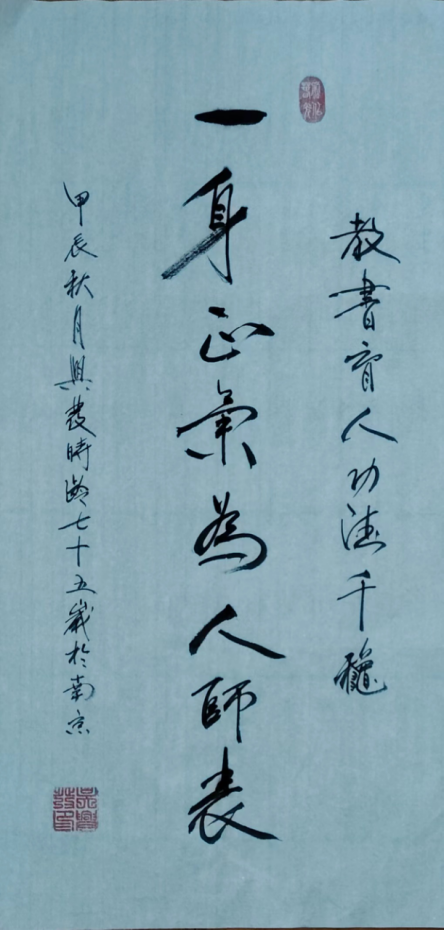 教書育人功德千穐
一身正氣為人師表
甲辰秋月興發時齡七十五歲於南京
吳興發印